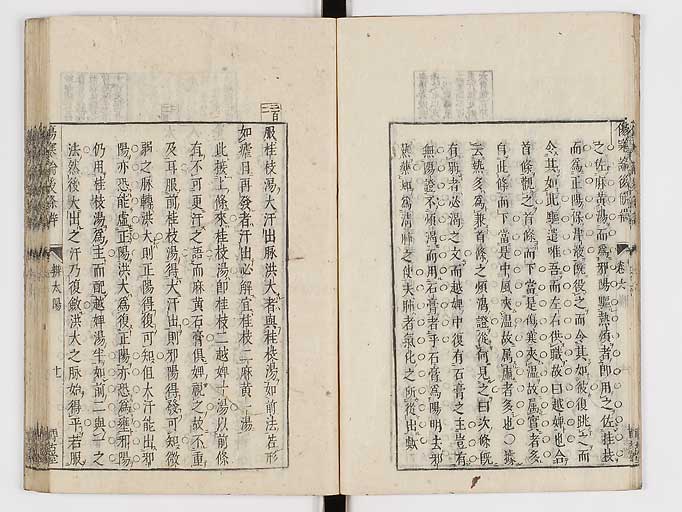 之佐麻黃湯而為邪陽驅熱煩者即用之佐桂枝
而為正陽保津液既從之而令其如彼復眺之而
令其如此驅遣唯吾而左右供職故曰越婢也合
首條觀之首條而下當是傷寒夾溫故屬實者多
自此條而下當是中風夾溫故屬虛者多也○據
去熱多為兼首條之煩渴證從何見之曰次條既
有脈者必渴之文而越婢中復有石膏之主豈有
無陽證不煩渴而用石膏者乎石膏為陽明去邪
熱為清肺之使夫肺者氣化之所從出
傷寒論後條辨
卷六
二百二
服桂枝湯大汗出脈洪大者與桂枝湯如前法若形
如瘧日再發者汗出必解宜桂枝二麻黃一湯
此接上條來桂枝湯即桂枝二越婢一湯以前條
有不可更汗之語而麻黃石膏俱婢視之故不重
及耳服前桂枝湯得大汗出則邪陽得發可知微
弱之脈轉洪大則正陽得復可知但大汗能出邪
陽亦恐能虛正陽洪大為復正陽亦恐為壅邪陽
仍用桂枝湯為主而配越婢湯半如前二與一之
法然後大出之汗乃復斂洪大之脈始得平若服
傷寒論後條辨
辨太陽
十二